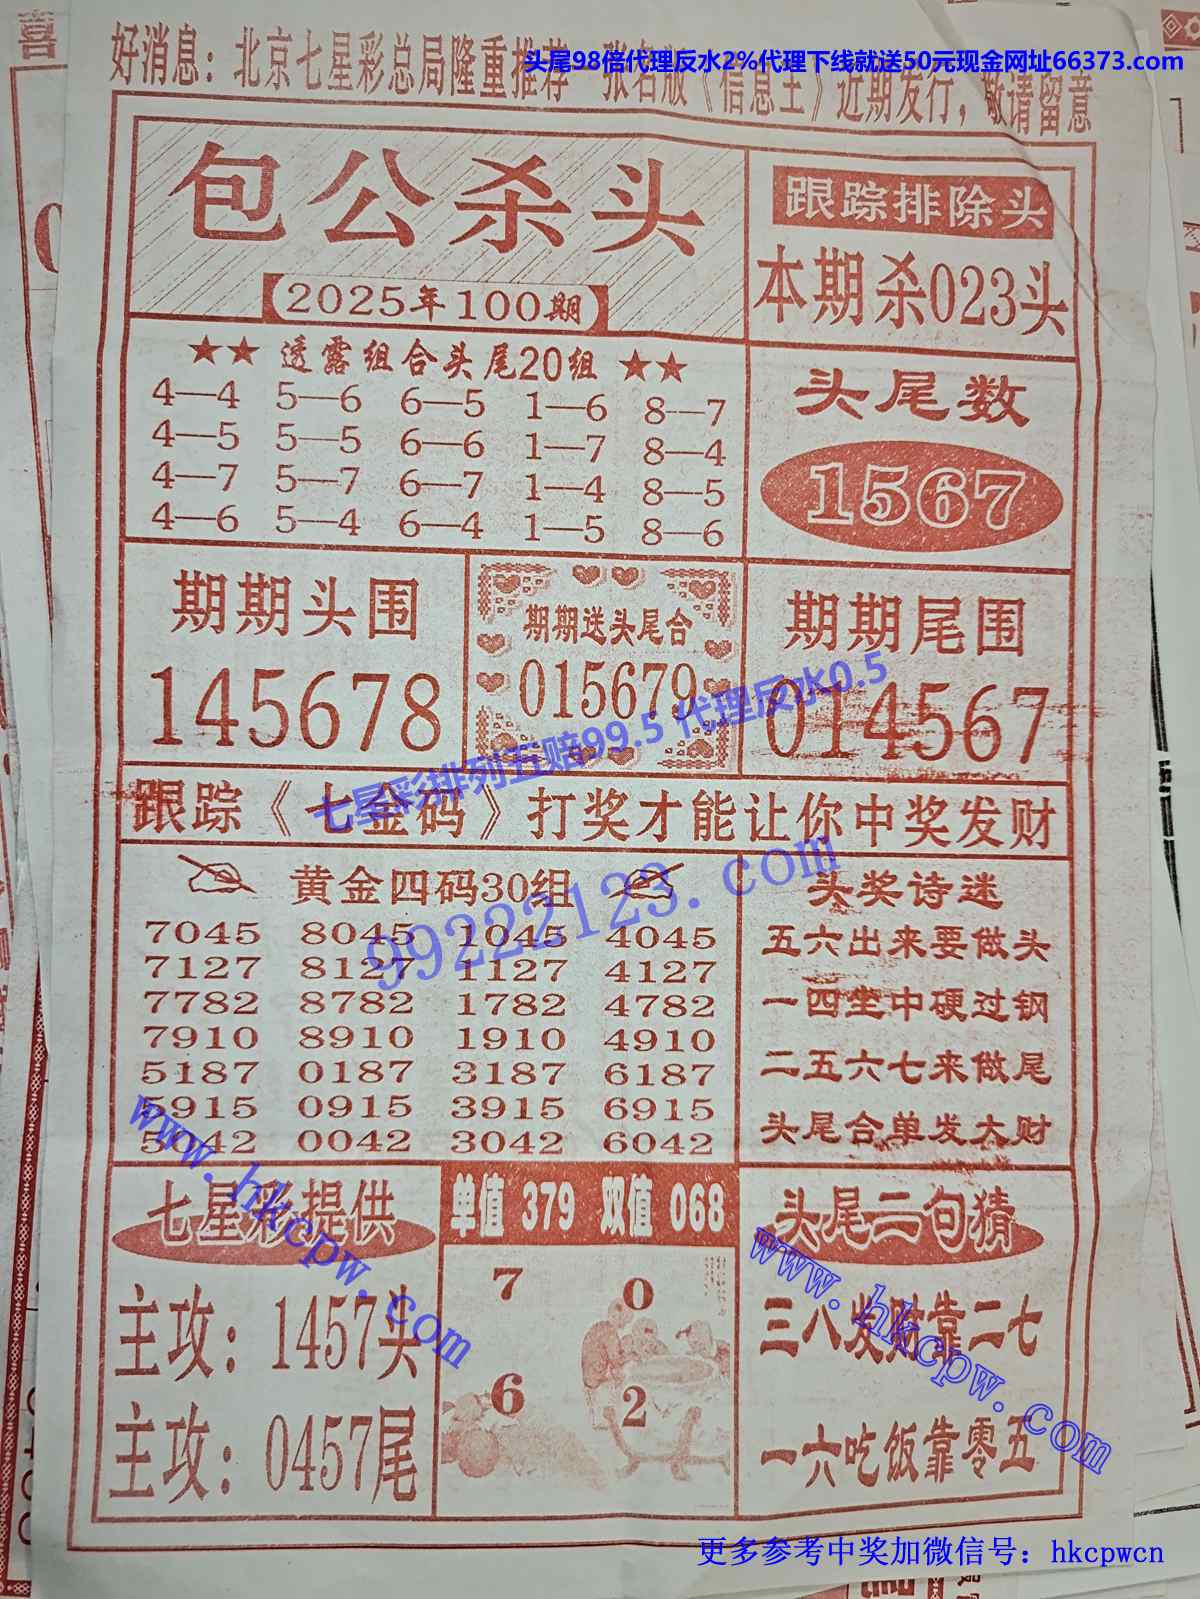 喜
好消息：北京七星彩总局隆重推荐 张名版《信息王》近期发行，敬请留意
头尾98倍代理反水2%代理下线就送50元现金网址66373.com
包公杀头
2025年100期
跟踪排除头
本期杀023头
★★ 透露组合头尾20组 ★★
4—4 5—6 6—5 1—6 8—7
4—5 5—5 6—6 1—7 8—4
4—7 5—7 6—7 1—4 8—5
4—6 5—4 6—4 1—5 8—6
头尾数
1567
期期头围
145678
期期送头尾合
015679
期期尾围
014567
七星彩排列五赔99.5 代理反水0.5
跟踪《七金码》打奖才能让你中奖发财
黄金四码30组
99222123.com
7045 8045 1045 4045
7127 8127 1127 4127
7782 8782 1782 4782
7910 8910 1910 4910
5187 0187 3187 6187
5915 0915 3915 6915
5042 0042 3042 6042
头奖诗迷
五六出来要做头
一四坐中硬过钢
二五六七来做尾
头尾合单发大财
www.hkcpw.com
七星彩提供
主攻：1457头
主攻：0457尾
单值 379 双值 068
7 0
6 2
头尾二句猜
三八发财靠二七
一六吃饭靠零五
www.hkcpw.com
更多参考中奖加微信号：hkcpwcn